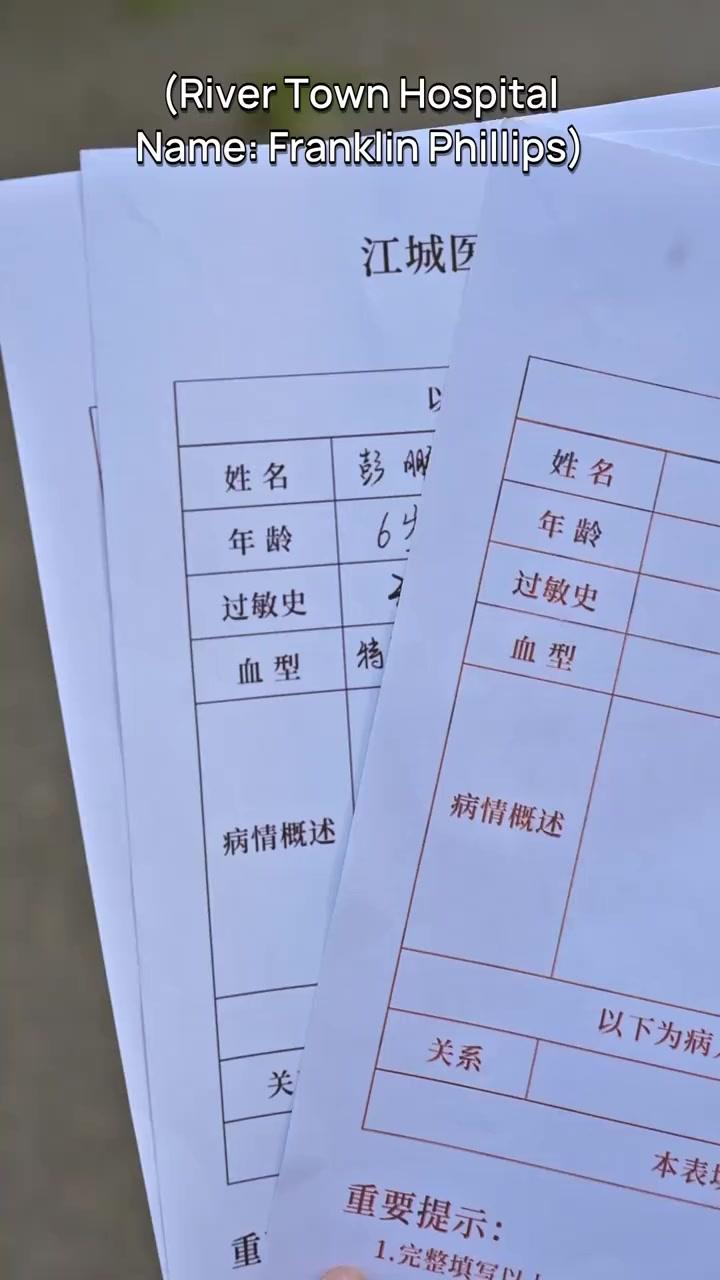 (River Town Hospital
Name: Franklin Phillips)
江城医
以
姓 名 彭 鹏
年 龄 6岁
过敏史
血 型 特
病情概述
关
重
姓 名
年 龄
过敏史
血 型
病情概述
以下为病人
关系
本表填
重要提示:
1.完整填写以上